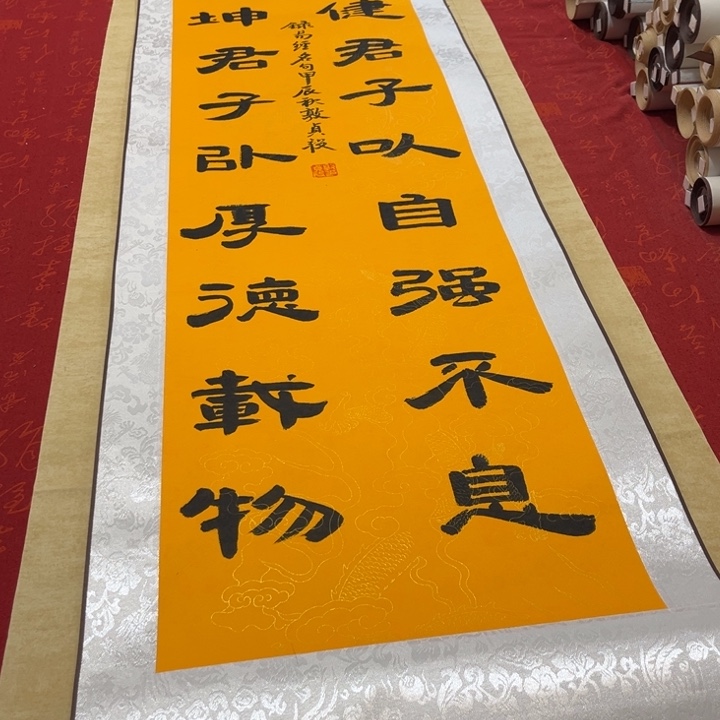 健君子以自强不息
坤君子以厚德載物
錄易經名句甲辰秋敦貞